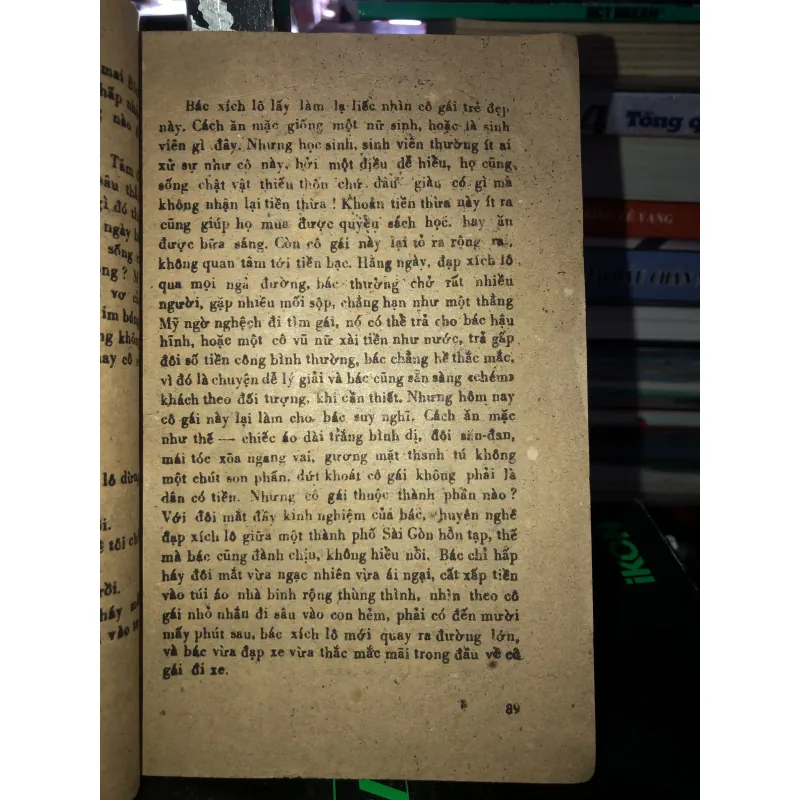 Bác xích lô lấy làm lạ liếc nhìn cô gái trẻ đẹp
này. Cách ăn mặc giống một nữ sinh, hoặc là sinh
viên gì đây. Nhưng học sinh, sinh viên thường ít ai
xử sự như cô này, bởi một điều dễ hiểu, họ cũng
sống chật vật thiếu thốn chứ đâu giàu có gì mà
không nhận lại tiền thừa ! Khoản tiền thừa này ít ra
cũng giúp họ mua được quyển sách học. hay ăn
được bữa sáng. Còn cô gái này lại tỏ ra rộng rãi,
không quan tâm tới tiền bạc. Hằng ngày, đạp xích lô
qua mọi ngả đường, bác thường chở rất nhiều
người, gặp nhiều mối sộp, chẳng hạn như một thằng
Mỹ ngờ nghệch đi tìm gái, nó có thể trả cho bác hậu
hĩnh, hoặc một cô vũ nữ xài tiền như nước, trả gấp
đôi số tiền công bình thường, bác chẳng hề thắc mắc,
vì đó là chuyện dễ lý giải và bác cũng sẵn sàng «chém»
khách theo đối tượng, khi cần thiết. Nhưng hôm nay
cô gái này lại làm cho bác suy nghĩ. Cách ăn mặc
như thế — chiếc áo dài trắng bình dị, đôi săn-đan,
mái tóc xõa ngang vai, gương mặt thanh tú không
một chút son phấn, dứt khoát cô gái không phải là
dân có tiền. Nhưng cô gái thuộc thành phần nào ?
Với đôi mắt đầy kinh nghiệm của bác, chuyên nghề
đạp xích lô giữa một thành phố Sài Gòn hỗn tạp, thế
mà bác cũng đành chịu, không hiểu nổi. Bác chỉ hấp
háy đôi mắt vừa ngạc nhiên vừa ái ngại, cất xấp tiền
vào túi áo nhà binh rộng thùng thình, nhìn theo cô
gái nhỏ nhắn đi sâu vào con hẻm, phải có đến mười
mấy phút sau, bác xích lô mới quay ra đường lớn,
và bác vừa đạp xe vừa thắc mắc mãi trong đầu về cô
gái đi xe.
89
Tổng
iKON